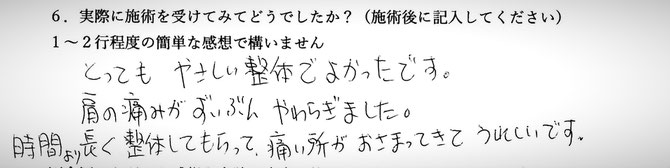 6．実際に施術を受けてみてどうでしたか？（施術後に記入してください）
1～2行程度の簡単な感想で構いません
とっても やさしい整体でよかったです。
肩の痛みがずいぶん やわらぎました。
時間より長く整体してもらって、痛い所が おさまってきて うれしいです。